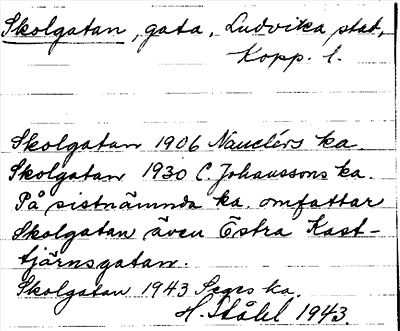 Skolgatan, gata, Ludvika stad,
Kopp. l.
Skolgatan 1906 Nauclérs ka.
Skolgatan 1930 C. Johanssons ka.
På sistnämnda ka. omfattar
Skolgatan även Östra Kast-
tjärnsgatan.
Skolgatan 1943 Segers ka.
H. Ståhl 1943